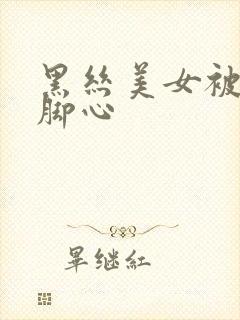 黑丝美女被
脚心
畢继红